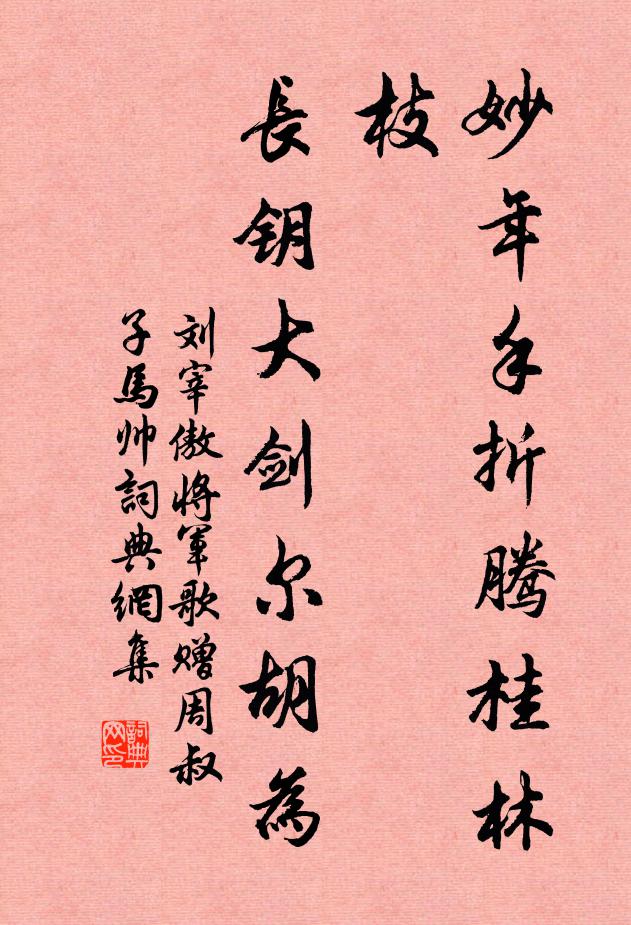 妙年手折腾桂林
枝
長钥大剑尔胡為
刘宰傲將军歌赠周叔
子馬帅詞典網集
詞典
网印